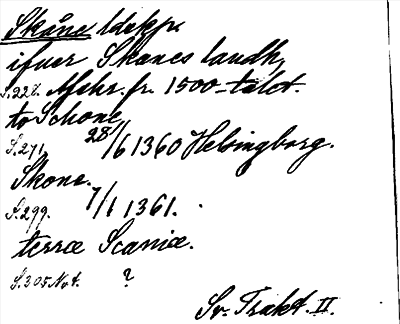 Skåne ldskp.
ifuer Skanes landh,
S. 228. Afskr. fr. 1500-talet.
to Schone
S. 271. 28/6 1360 Helsingborg.
Skone.
S. 299. 7/1 1361.
terræ Scaniæ.
S. 305 Not. ?
Sv. Trakt. II.